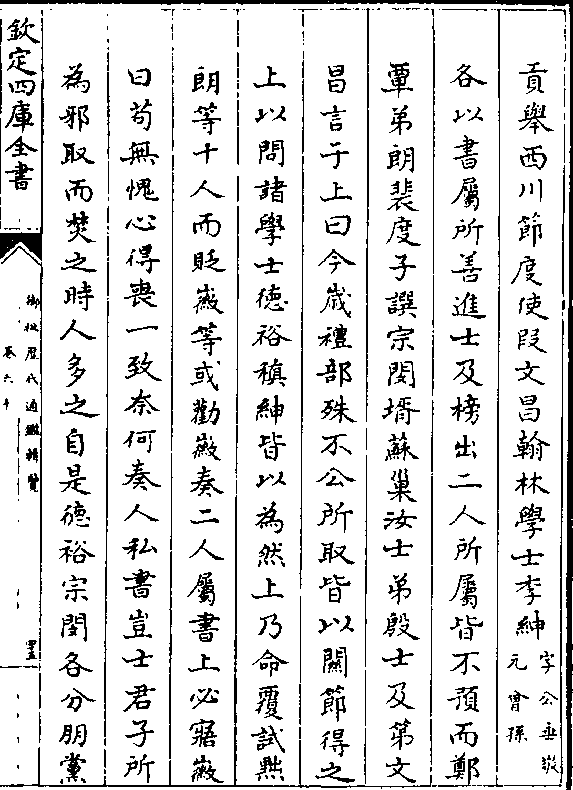 貢舉西川節度使段文昌翰林學士李紳字公垂敬
元曾孫
各以書屬所善進士及榜出二人所屬皆不預而鄭
覃弟朗裴度子譔宗閔壻蘇巢汝士弟殷士及第文
昌言于上曰今歳禮部殊不公所取皆以關節得之
上以問諸學士徳裕稹紳皆以為然上乃命覆試黜
朗等十人而貶徽等或勸徽奏二人屬書上必寤徽
曰苟無愧心得喪一致奈何奏人私書豈士君子所
為邪取而焚之時人多之自是徳裕宗閔各分朋黨
欽定四庫全書
御批歴代通鑑輯覽
卷六十